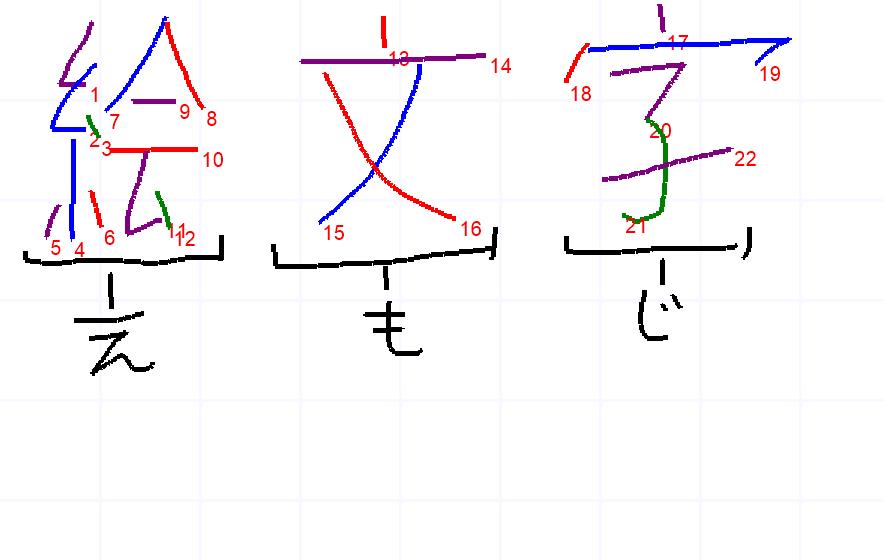 絵文字
1 2 3 4 5 6 7 8 9 10 11 12 13 14 15 16 17 18 19 20 21 22
え も じ